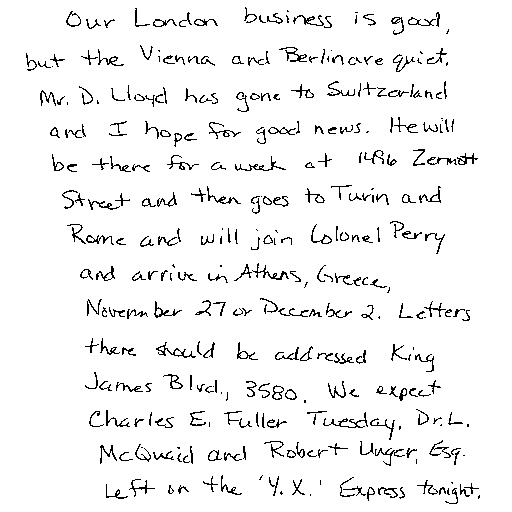 Our London business is good,
but the Vienna and Berlin are quiet.
Mr. D. Lloyd has gone to Switzerland
and I hope for good news. He will
be there for a week at 1496 Zermott
Street and then goes to Turin and
Rome and will join Colonel Perry
and arrive in Athens, Greece,
November 27 or December 2. Letters
there should be addressed King
James Blvd., 3580. We expect
Charles E. Fuller Tuesday. Dr. L.
McQuaid and Robert Unger, Esq.
Left on the 'Y. X.' Express tonight.